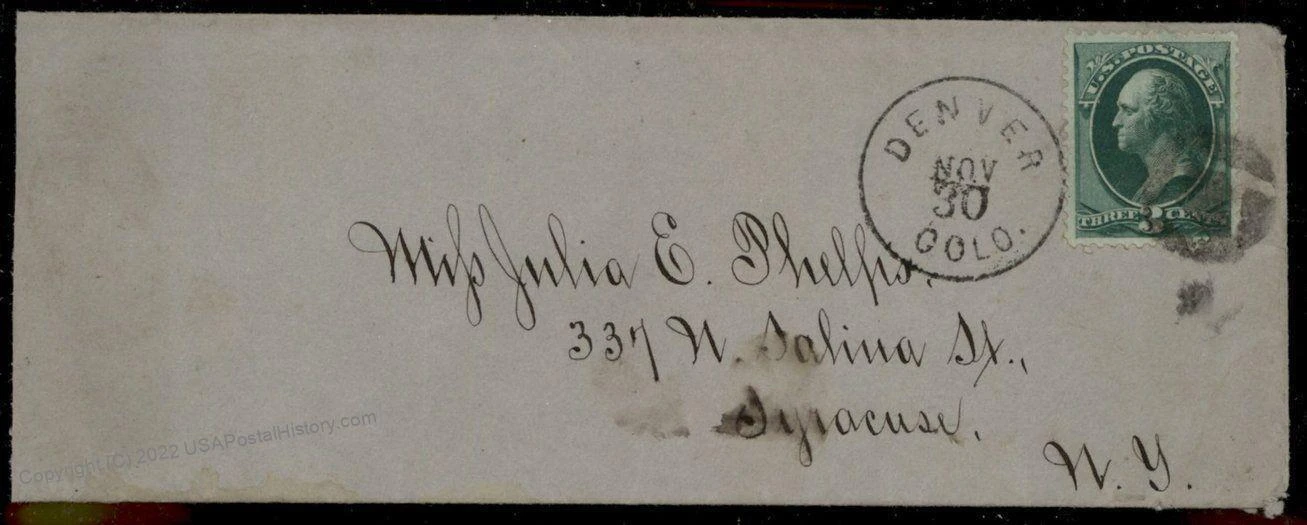 U.S. POSTAGE
THREE 3 CENTS
DENVER
NOV
30
COLO.
Miss Julia E. Phelps.
337 N. Salina St.,
Syracuse,
N. Y.
Copyright (C) 2022 USAPostalHistory.com